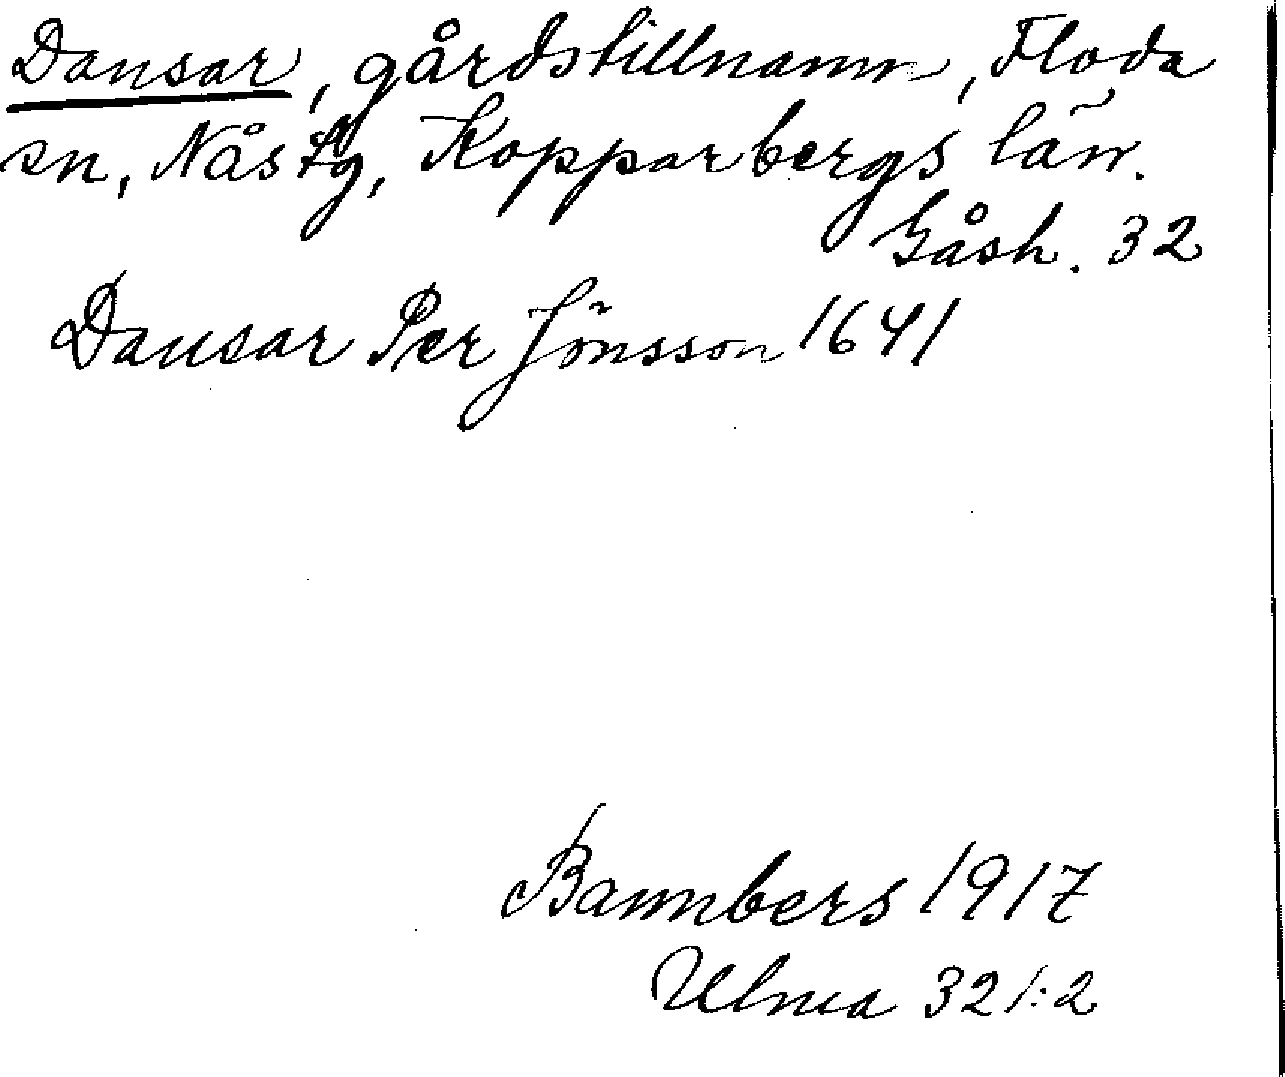 Dansar, gårdstillnamn, Floda
sn, Nås tg, Kopparbergs län.
Gåsh. 32
Dansar Per Jönsson 1641
Bannbers 1917
Ulma 321:2